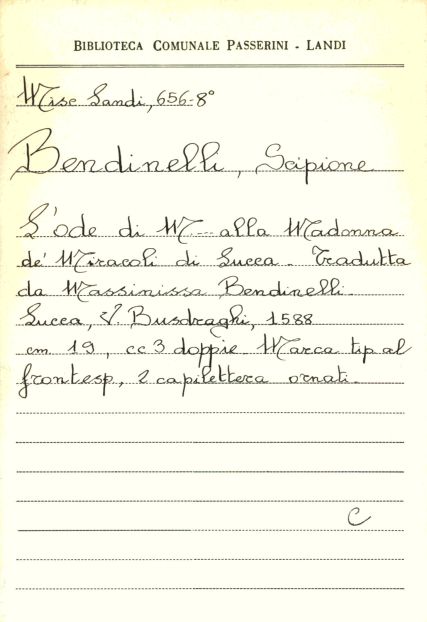 BIBLIOTECA COMUNALE PASSERINI - LANDI
Misc Landi, 656-8°
Bendinelli, Scipione
L'ode di M--- alla Madonna
de' Miracoli di Lucca. Tradutta
da Massinissa Bendinelli.
Lucca, V. Busdraghi, 1588
cm 19, cc 3 doppie. Marca tip al
frontesp, 2 capilettera ornati.
C